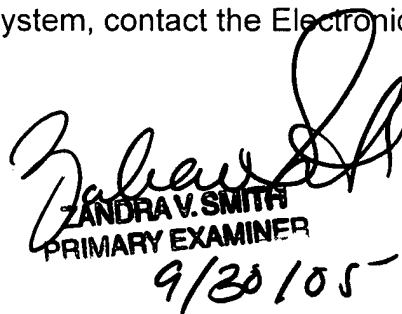 ystem, contact the Electronic
ZANDRA V. SMITH
PRIMARY EXAMINER
9/30/05